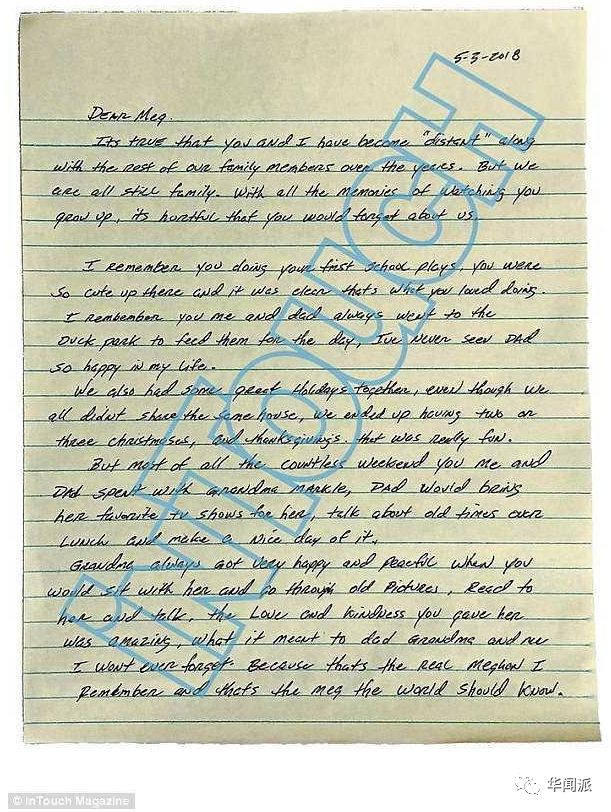 5-3-2018
Dear Meg.
Its true that you and I have become "distant" along
with the rest of our family members over the years. But we
are all still family. With all the memories of watching you
grow up, its hurtful that you would forget about us.
I remember you doing your first school plays, you were
so cute up there and it was clear thats what you loved doing.
I remember you me and dad always went to the
Duck park to feed them for the day, I've never seen Dad
so happy in my life.
We also had some great Holidays together, even though we
all didnt share the same house, we ended up having two or
three christmases, and thanksgivings. that was really fun.
But most of all the countless weekend you me and
Dad spent with grandma markle, Dad would bring
her favorite tv shows for her, talk about old times over
Lunch and make a nice day of it.
Grandma always got very happy and peaceful when you
would sit with her and go through old Pictures, Read to
her and talk, the Love and kindness you gave her
was amazing, what it meant to dad Grandma and me
I wont ever forget. Because thats the real Meghan I
Remember and thats the meg the world should know.
INTOUCH
© InTouch Magazine
华闻派